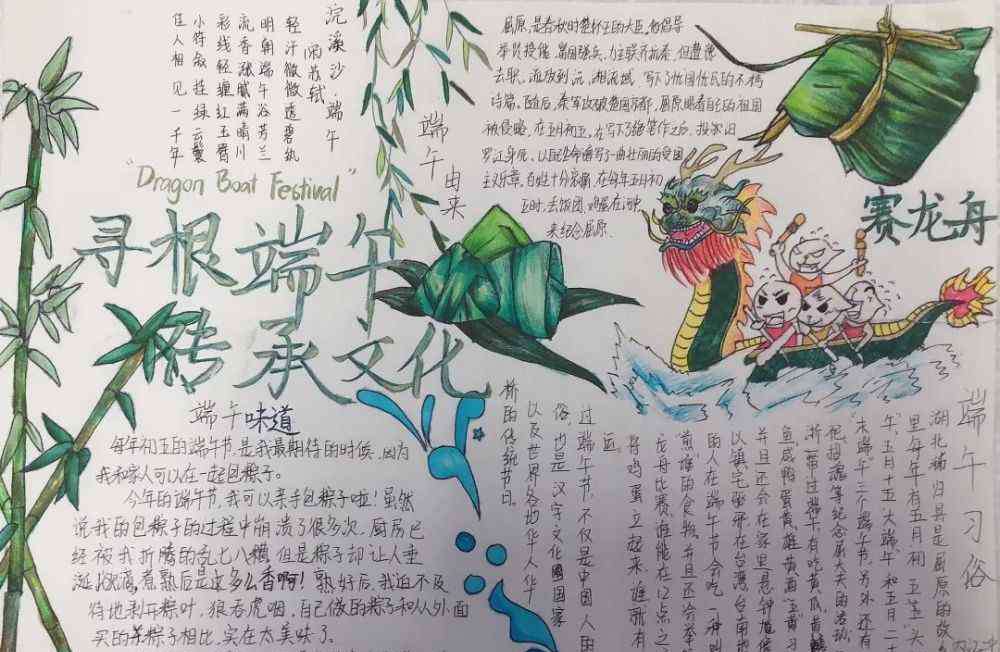 浣溪沙 端午
宋苏轼
轻汗微微透碧纨
明朝端午浴芳兰
流香涨腻满晴川
彩线轻缠红玉臂
小符斜挂绿云鬟
佳人相见一千年
"Dragon Boat Festival"
寻根端午
传承文化
端午由来
屈原,是春秋时楚怀王的大臣,他倡导
举贤授能,富国强兵,力主联齐抗秦,但遭
去职,流放到沅、湘流域,写下了忧国忧民的不朽
诗篇。
被侵略,在五月初五,在写下了绝笔作之后,投
罗江身死,以自己生命谱写了一曲壮丽的爱国
主义乐章。百姓十分哀痛,在每年五月初
来纪念屈原
赛龙舟
端午味道
每年初五的端午节,是我最期待的时候,因为
我和家人可以在一起包粽子。
今年的端午节,我可以亲手包粽子啦!虽然
说我的包粽子的过程中崩溃了很多次,厨房已
经被我折腾的乱七八糟,但是粽子却让人垂
涎欲滴,煮熟后是这么么香啊!熟好后,我迫不及
待地剥开粽叶,狼吞虎咽,自己做的粽子和从外面
买的粽子相比,实在太美味了。
端午习俗
湖北秭归县是屈原的故
里每年有五月初五"头
午五月十五"大端午"和五月二十
"末端午"三个端午节,另外还有
祝招魂等纪念屈大夫的活动,
浙一带过端午有吃黄瓜黄鳝
鱼咸鸭蛋黄雄黄酒"五黄"习
并且还会在家里悬钟馗像
以镇宅驱邪,在台湾台南地
的人在端午节会吃一种叫
煎䭔的食物,并且还会举
龙舟比赛,谁能在12点之
将鸡蛋立起来,谁就有
运。
过端午节,不仅是中国人的
俗,也是汉字文化圈国家
以及世界各地华人华
侨的传统节日。